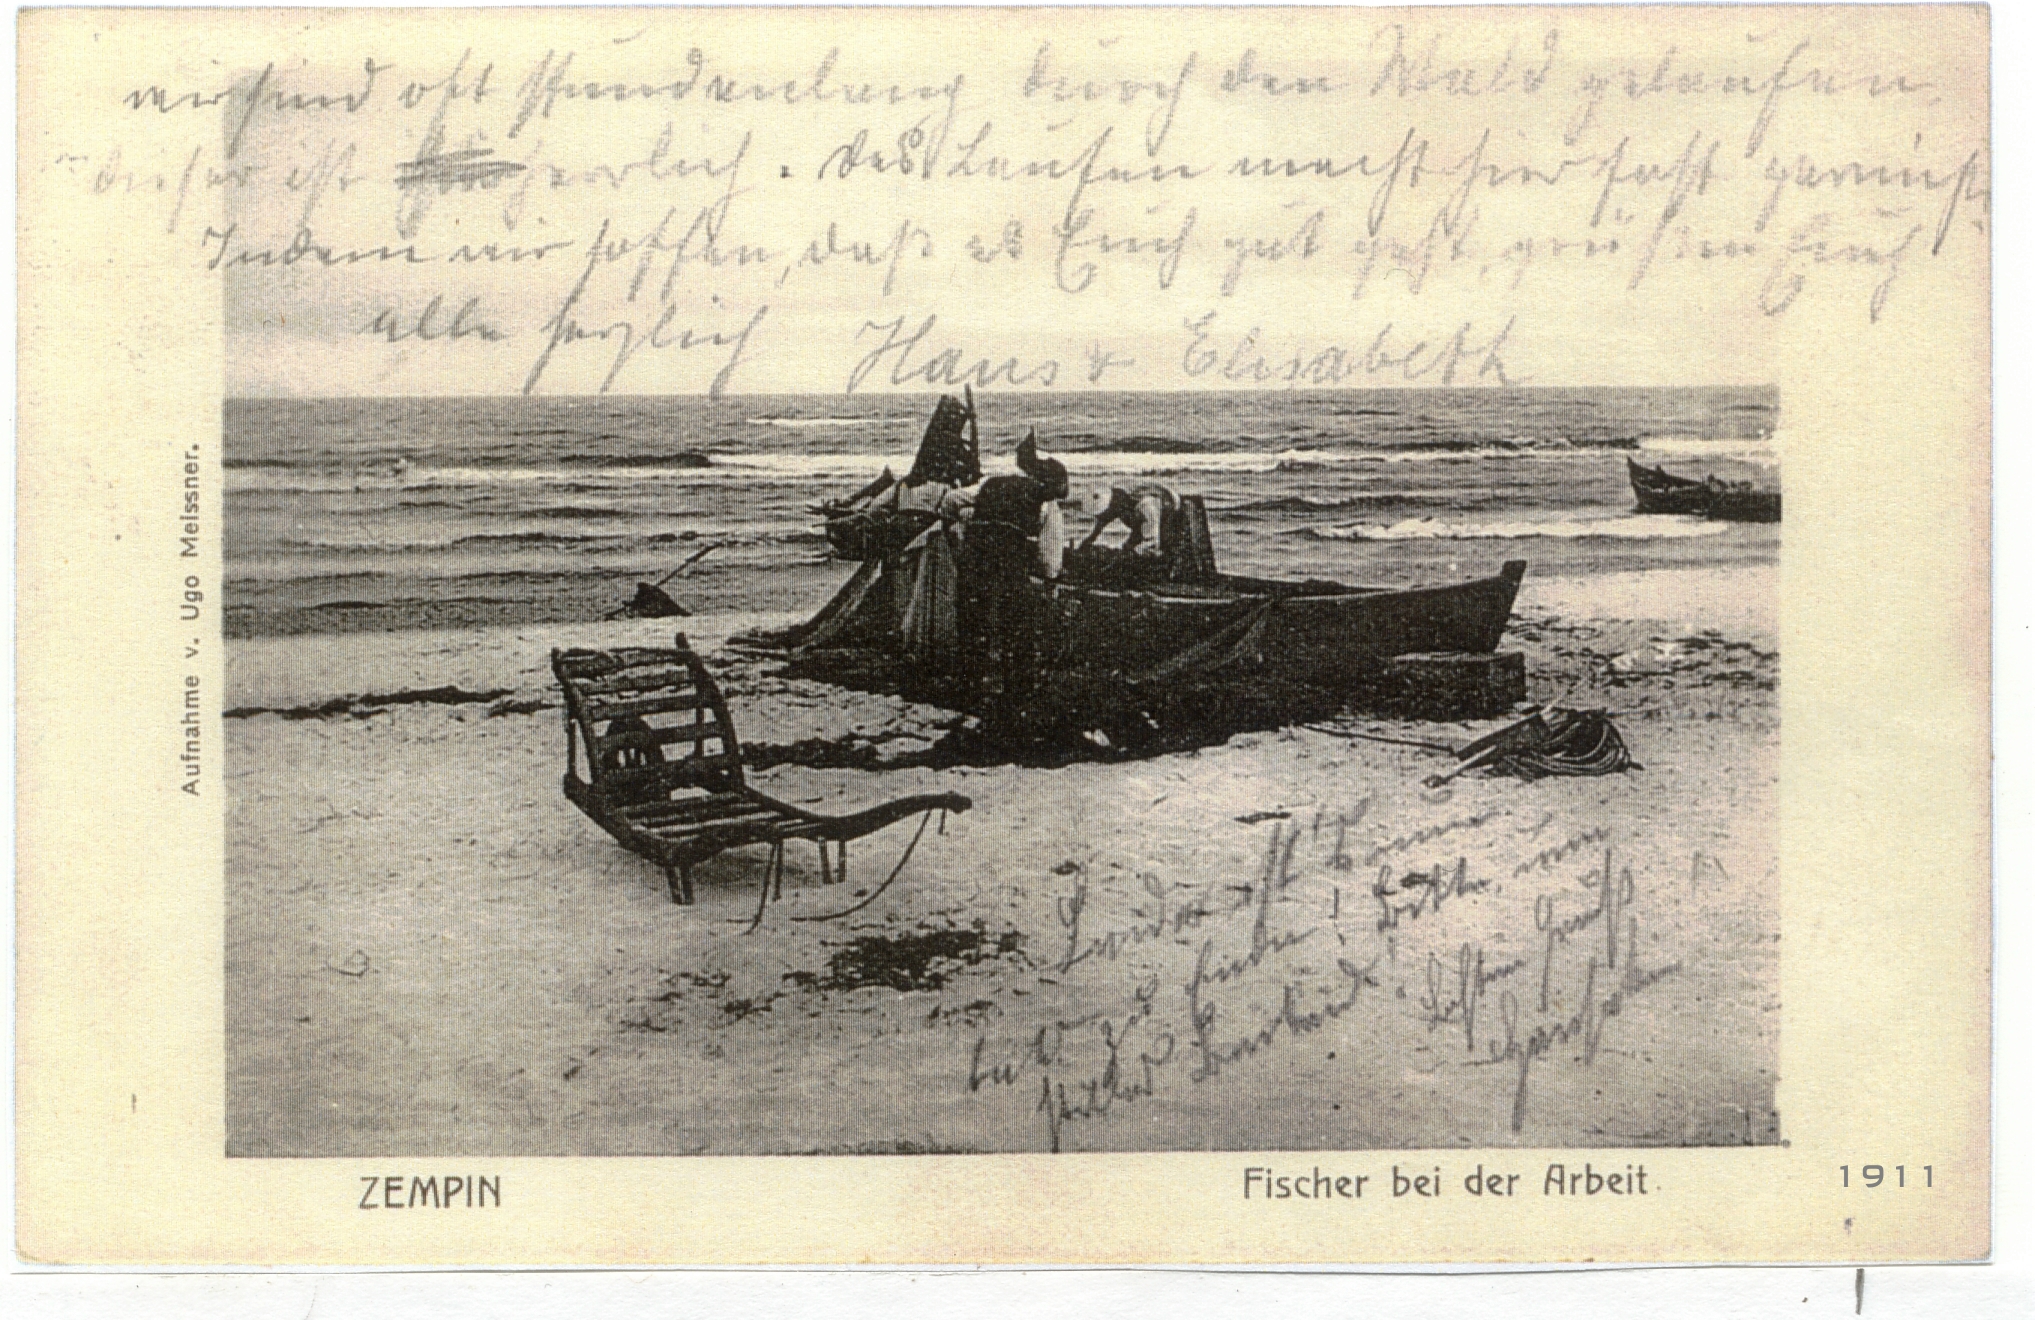 wir sind oft stundenlang durch den Wald gelaufen,
dieser ist herrlich. Das Laufen macht hier fast garnichts
Indem wir hoffen, daß es Euch gut geht, grüßen Euch
alle herzlich Hans & Elisabeth
Aufnahme v. Ugo Meissner.
Leider ist
bald zu Ende!
stiller
Besten Gruß
ZEMPIN
Fischer bei der Arbeit.
1911